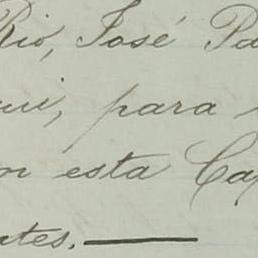 Rio, José Pa
ui, para
esta Cap
tes.